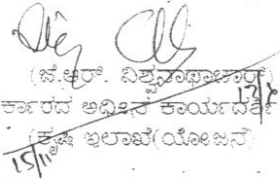 (ಜಿ.ಆರ್. ವಿಶ್ವನಾಥಾಚಾರ್)
ರ್ಕಾರದ ಅಧೀನ ಕಾರ್ಯದರ್ಶಿ
(ಕೃಷಿ ಇಲಾಖೆ(ಯೋಜನೆ)
15/11